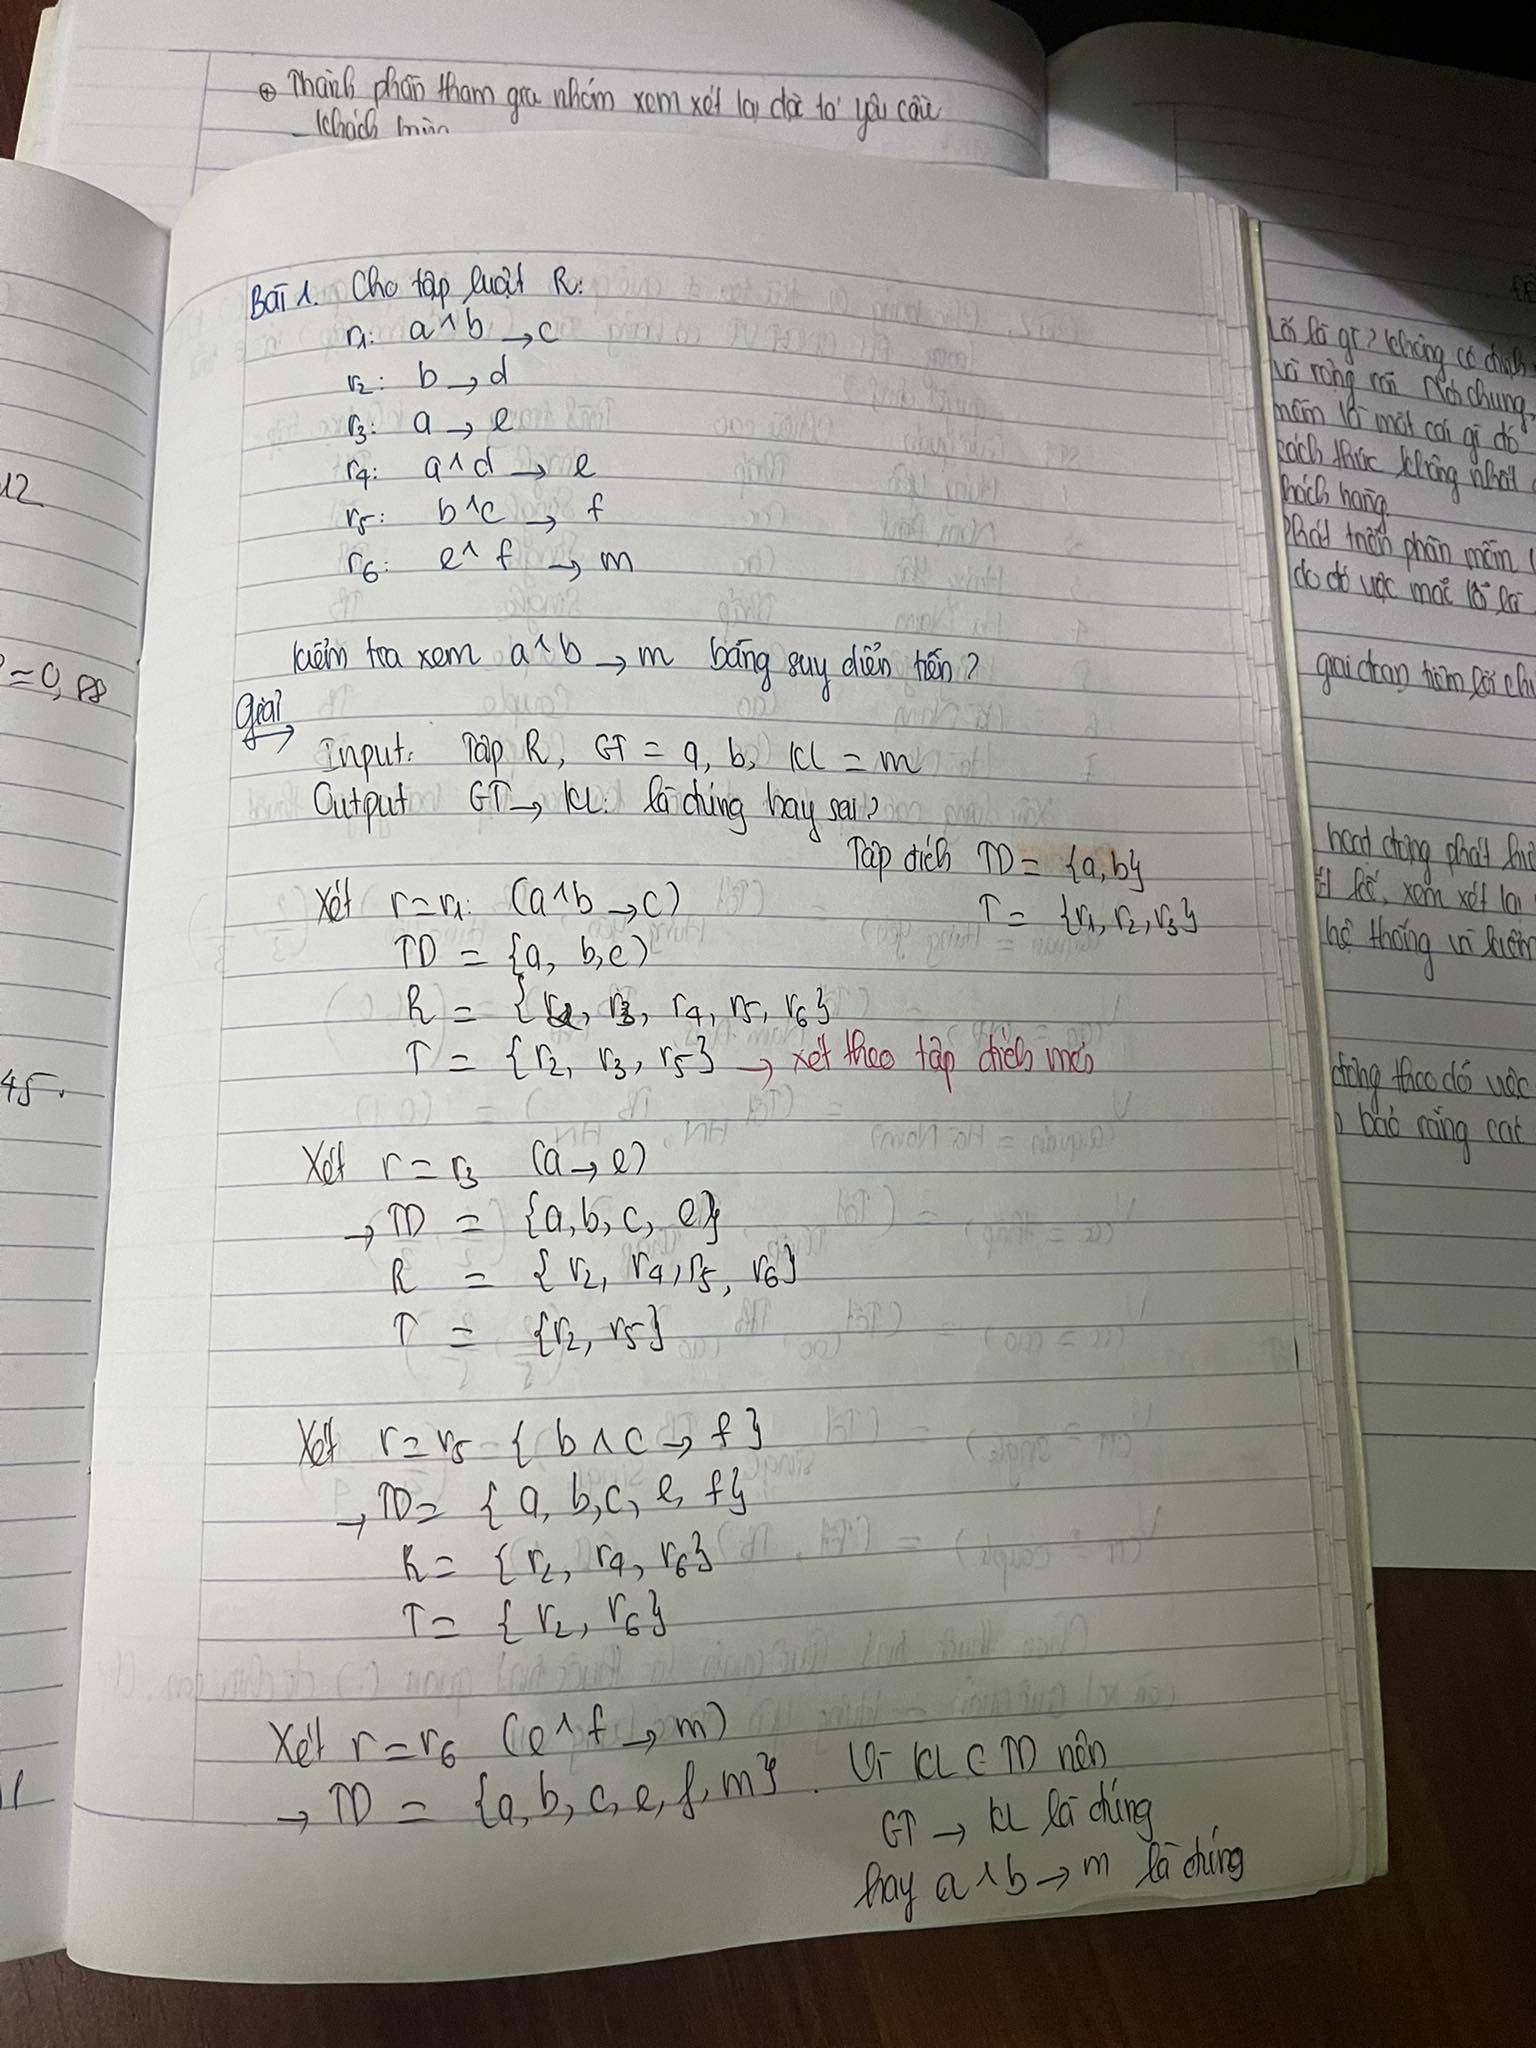 ⊕ Thành phần tham gia nhóm xem xét lại đặc tả yêu cầu
Bài 1. Cho tập luật R:
r1: a ^ b → c
r2: b → d
r3: a → e
r4: a ^ d → e
r5: b ^ c → f
r6: e ^ f → m
Kiểm tra xem a ^ b → m bằng suy diễn tiến?
Giải
Input: Tập R, GT = a, b, KL = m
Output GT → KL: là đúng hay sai?
Tập đích TD = {a, b}
Xét r = r1: (a ^ b → c)
T = {r1, r2, r3}
TD = {a, b, c)
R = {r2, r3, r4, r5, r6}
T = {r2, r3, r5} → xét theo tập đích mới
Xét r = r3 (a → e)
→ TD = {a, b, c, e}
R = {r2, r4, r5, r6}
T = {r2, r5}
Xét r = r5 { b ^ c → f}
→ TD = { a, b, c, e, f}
R = {r2, r4, r6}
T = { r2, r6}
Xét r = r6 (e ^ f → m)
→ TD = {a, b, c, e, f, m}. Vì KL ⊂ TD nên
GT → KL là đúng
hay a ^ b → m là đúng
12
= 0,88
45.
lỗi là gì? không có định
và rộng rãi Nói chung,
mềm là một cái gì đó
cách thức không nhất
khách hàng.
phát triển phần mềm
do đó việc mắc lỗi là
giai đoạn tiềm lỗi chi
hoạt động phát
xem xét lại
hệ thống vì kiểm
động theo dõi việc
bảo rằng các